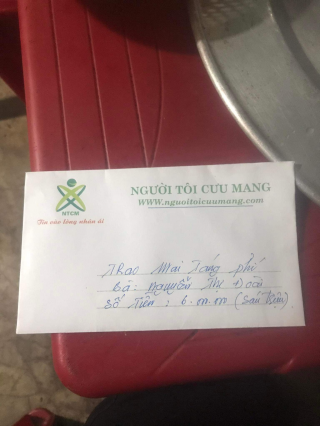 NGƯỜI TÔI CƯU MANG
www.nguoitoicuumang.com
NTCM
Tin vào lòng nhân ái
Trao Mai Táng phí
bà: Nguyễn Thị Đoàn
Số Tiền: 6.000.000 (Sáu triệu)